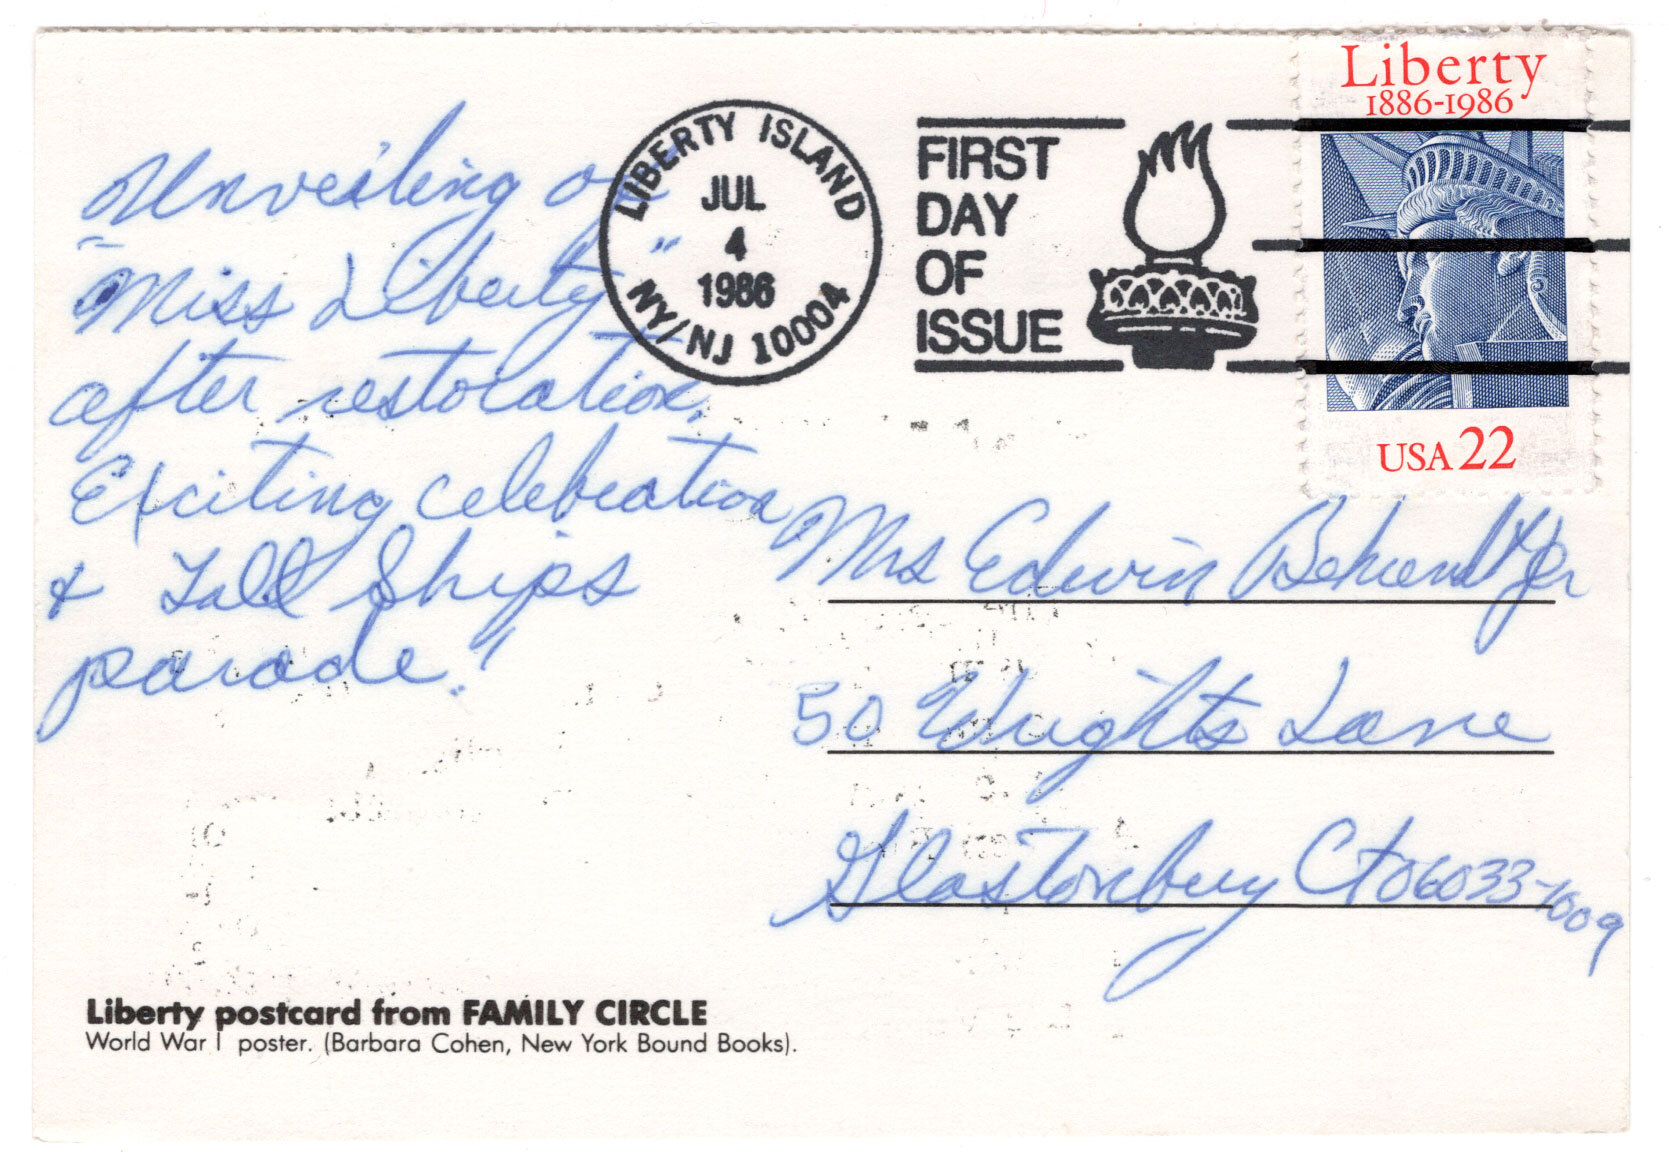 Unveiling of
"Miss Liberty"
after restoration.
Exciting celebration
& Tall Ships
parade!
LIBERTY ISLAND
JUL
4
1986
NY/NJ 10004
FIRST
DAY
OF
ISSUE
Liberty
1886-1986
USA 22
Mrs Edwin Behrendt Jr
50 Wrights Lane
Glastonbury Ct 06033-1609
Liberty postcard from FAMILY CIRCLE
World War I poster. (Barbara Cohen, New York Bound Books).